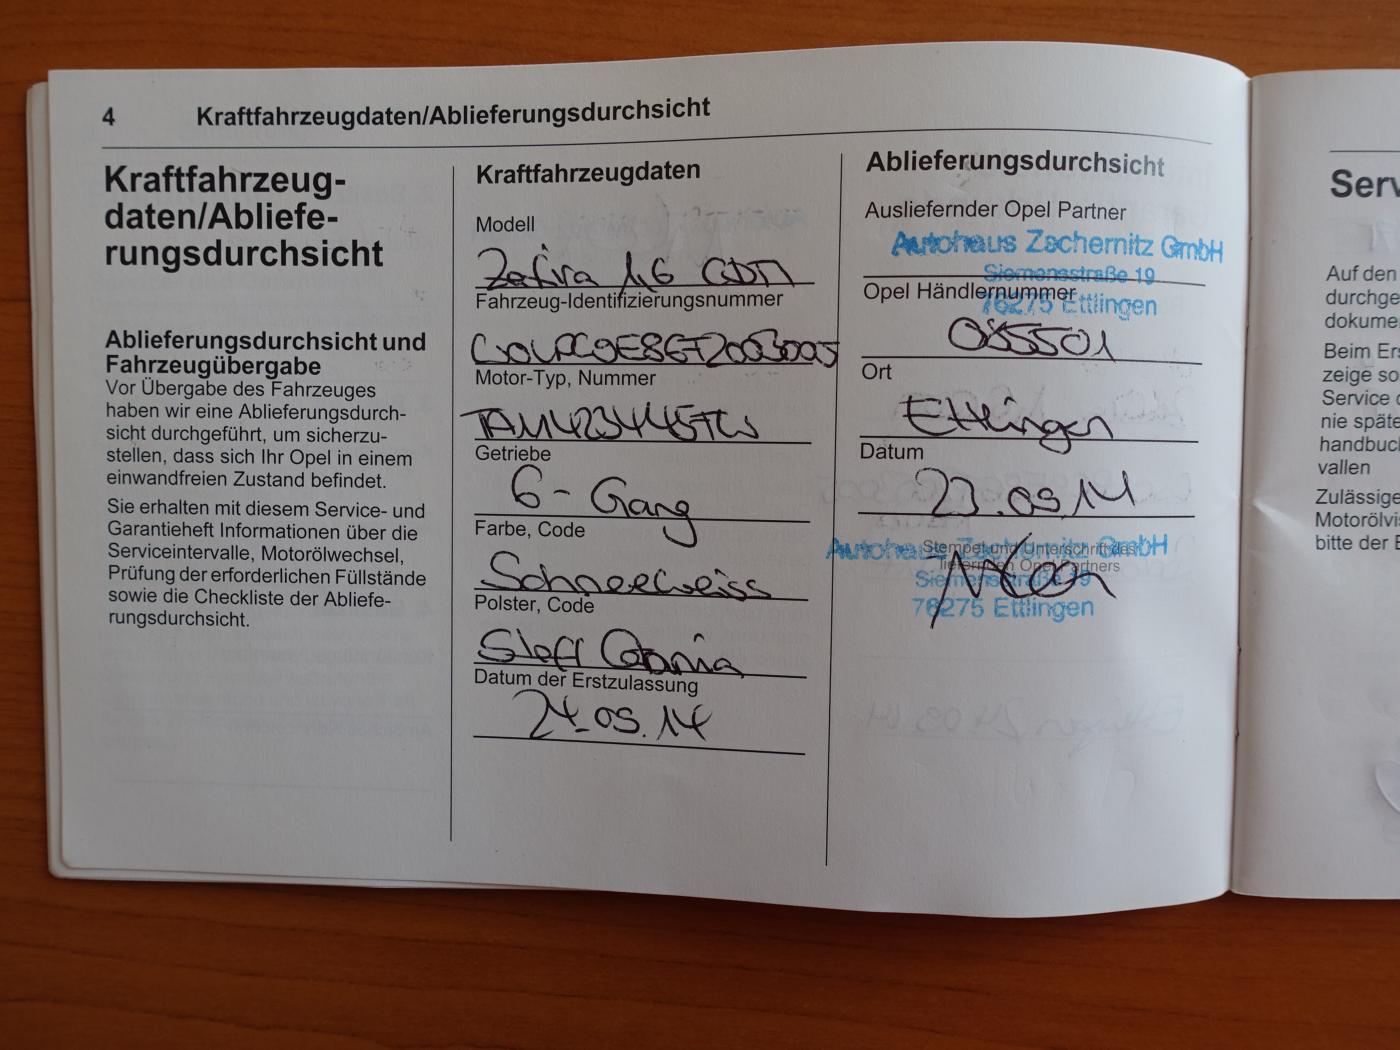 4 Kraftfahrzeugdaten/Ablieferungsdurchsicht
Kraftfahrzeug-
daten/Abliefe-
rungsdurchsicht
Ablieferungsdurchsicht und
Fahrzeugübergabe
Vor Übergabe des Fahrzeuges
haben wir eine Ablieferungsdurch-
sicht durchgeführt, um sicherzu-
stellen, dass sich Ihr Opel in einem
einwandfreien Zustand befindet.
Sie erhalten mit diesem Service- und
Garantieheft Informationen über die
Serviceintervalle, Motorölwechsel,
Prüfung der erforderlichen Füllstände
sowie die Checkliste der Abliefe-
rungsdurchsicht.
Kraftfahrzeugdaten
Modell
Zafira 1,6 CDTI
Fahrzeug-Identifizierungsnummer
Motor-Typ, Nummer
Getriebe
6-Gang
Farbe, Code
Schneeweiss
Polster, Code
Stoff
Datum der Erstzulassung
24.09.14
Ablieferungsdurchsicht
Ausliefernder Opel Partner
Autohaus Zschernitz GmbH
Siemensstraße 19
76275 Ettlingen
Opel Händlernummer
085501
Ort
Ettlingen
Datum
23.09.14
Autohaus Zschernitz GmbH
Siemensstraße 19
76275 Ettlingen
Stempel und Unterschrift des
Opel Partners
Serv
Auf den
durchge
dokume
Beim Ers
zeige so
Service
nie späte
handbuc
vallen
Zulässige
Motorölvis
bitte der B